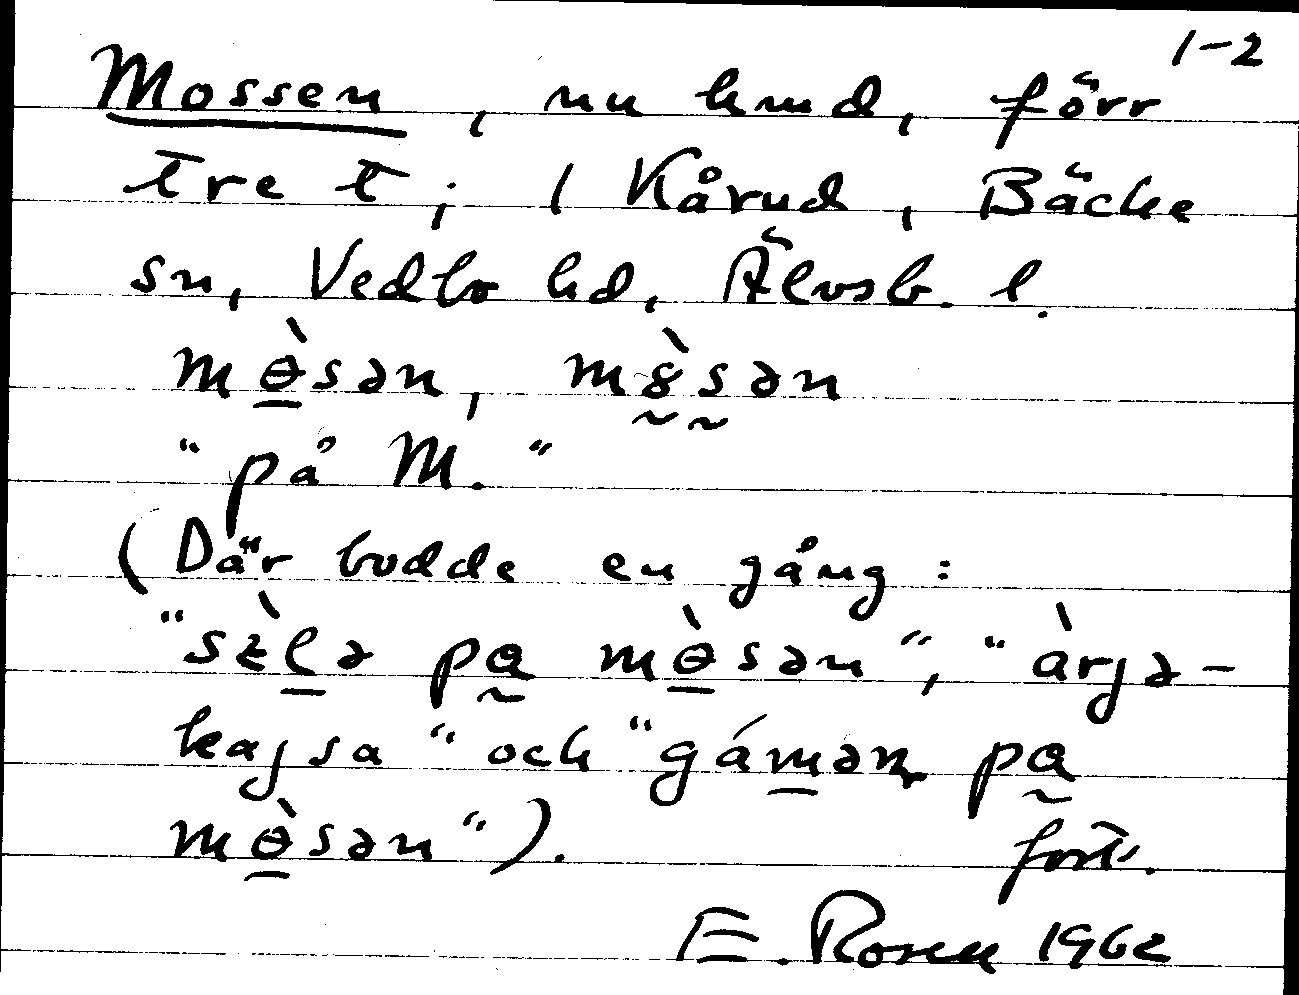 1-2
Mossen, nu hmd, förr
tre t; 1 Kårud, Bäcke
sn, Vedbo hd, Älvsb. l.
mɵ̀sən, mɤ̀sən
"på M."
(Där bodde en gång:
"sɛ̀lə pɑ mɵ̀sən", "àrjə-
kajsa" och "gámən pɑ
mɵ̀sən"). fort.
E. Rosen 1962